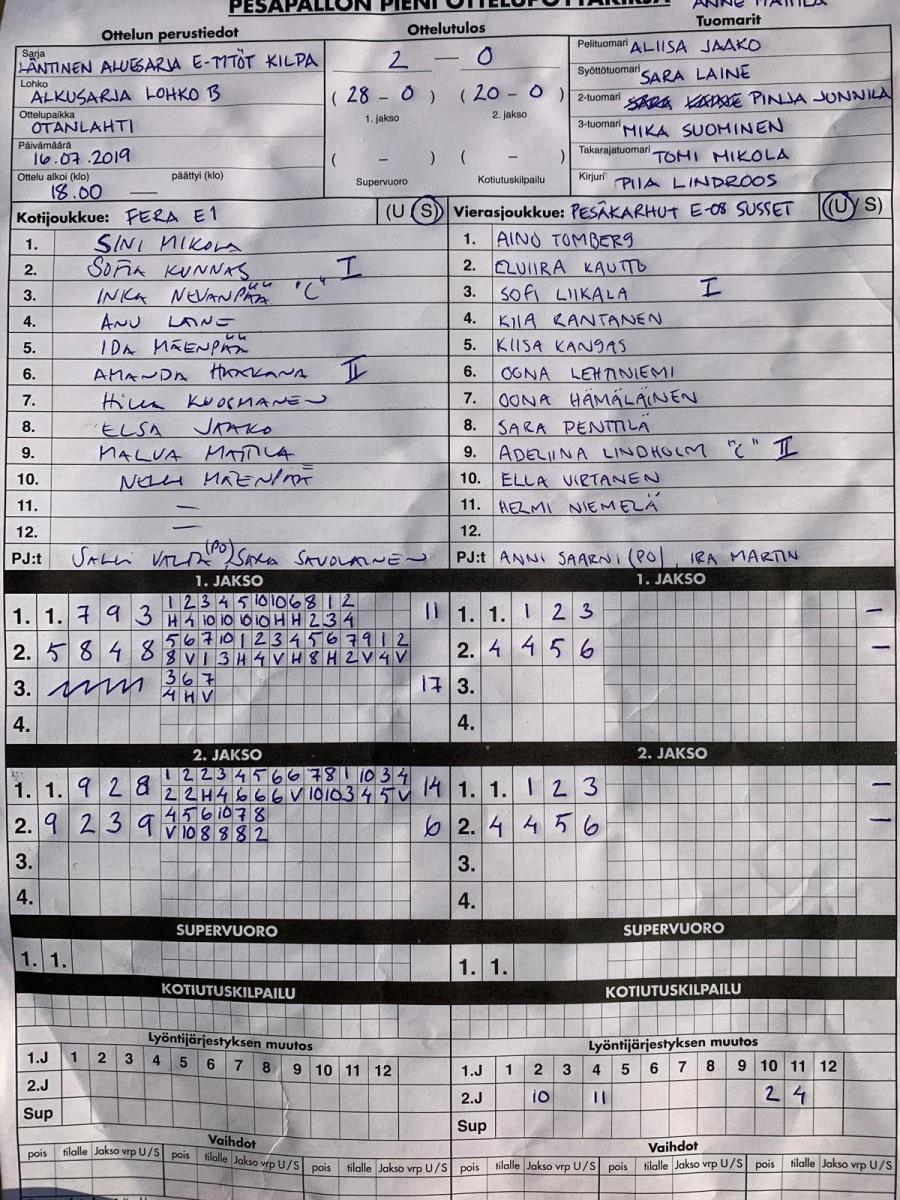 PESÄPALLON PIENI OTTELUPÖYTÄKIRJA
Ottelun perustiedot
Ottelutulos
Tuomarit
Sarja
LÄNTINEN ALUESARJA E-TYTÖT KILPA
2 — 0
Pelituomari ALIISA JAAKO
Lohko
ALKUSARJA LOHKO B
( 28 - 0 ) ( 20 - 0 )
Syöttötuomari SARA LAINE
Ottelupaikka
OTANLAHTI
1. jakso 2. jakso
2-tuomari PINJA JUNNILA
Päivämäärä
16.07.2019
3-tuomari MIKA SUOMINEN
( - ) ( - )
Takarajatuomari TOMI MIKOLA
Ottelu alkoi (klo) päättyi (klo)
18.00 —
Supervuoro Kotiutuskilpailu
Kirjuri PIIA LINDROOS
Kotijoukkue: FERA E1 (U S)
1. SINI MIKOLA
2. SOFIA KUNNAS I
3. INKA NEVANPÄÄ "C"
4. ANU LAINE
5. IDA MÄENPÄÄ
6. AMANDA HAKKANA II
7. HILLA KUOSMANEN
8. ELSA JAAKO
9. MALVA MATTILA
10. NELLI MÄENPÄÄ
11. —
12. —
PJ:t SALLI VALTA (PO) SARA SAVOLAINEN
Vierasjoukkue: PESÄKARHUT E-08 SUSSET (U/S)
1. AINO TOMBERG
2. ELVIIRA KAUTTO
3. SOFI LIIKALA I
4. KIIA RANTANEN
5. KIISA KANGAS
6. OONA LEHTINIEMI
7. OONA HÄMÄLÄINEN
8. SARA PENTTILÄ
9. ADELIINA LINDHOLM "C" II
10. ELLA VIRTANEN
11. HELMI NIEMELÄ
12.
PJ:t ANNI SAARNI (PO), IRA MARTIN
1. JAKSO
1. 1. 7 9 3 1 2 3 4 5 10 10 6 8 1 2 11
H 4 10 10 10 H H 2 3 4
2. 5 8 4 8 5 6 7 10 1 2 3 4 5 6 7 9 1 2
8 V 1 3 H 4 V H 8 H 2 V 4 V
3. 3 6 7 17
4 H V
4.
1. JAKSO
1. 1. 1 2 3 —
2. 4 4 5 6 —
3.
4.
2. JAKSO
1. 1. 9 2 8 1 2 2 3 4 5 6 6 7 8 1 10 3 4 14
2 2 H 4 6 6 6 V 10 10 3 4 5 V
2. 9 2 3 9 4 5 6 10 7 8 6
V 10 8 8 8 2
3.
4.
2. JAKSO
1. 1. 1 2 3 —
2. 4 4 5 6 —
3.
4.
SUPERVUORO
1. 1.
SUPERVUORO
1. 1.
KOTIUTUSKILPAILU
KOTIUTUSKILPAILU
Lyöntijärjestyksen muutos
1.J 1 2 3 4 5 6 7 8 9 10 11 12
2.J
Sup
Lyöntijärjestyksen muutos
1.J 1 2 3 4 5 6 7 8 9 10 11 12
2.J 10 11 2 4
Sup
Vaihdot
pois tilalle Jakso vrp U/S pois tilalle Jakso vrp U/S pois tilalle Jakso vrp U/S
Vaihdot
pois tilalle Jakso vrp U/S pois tilalle Jakso vrp U/S pois tilalle Jakso vrp U/S